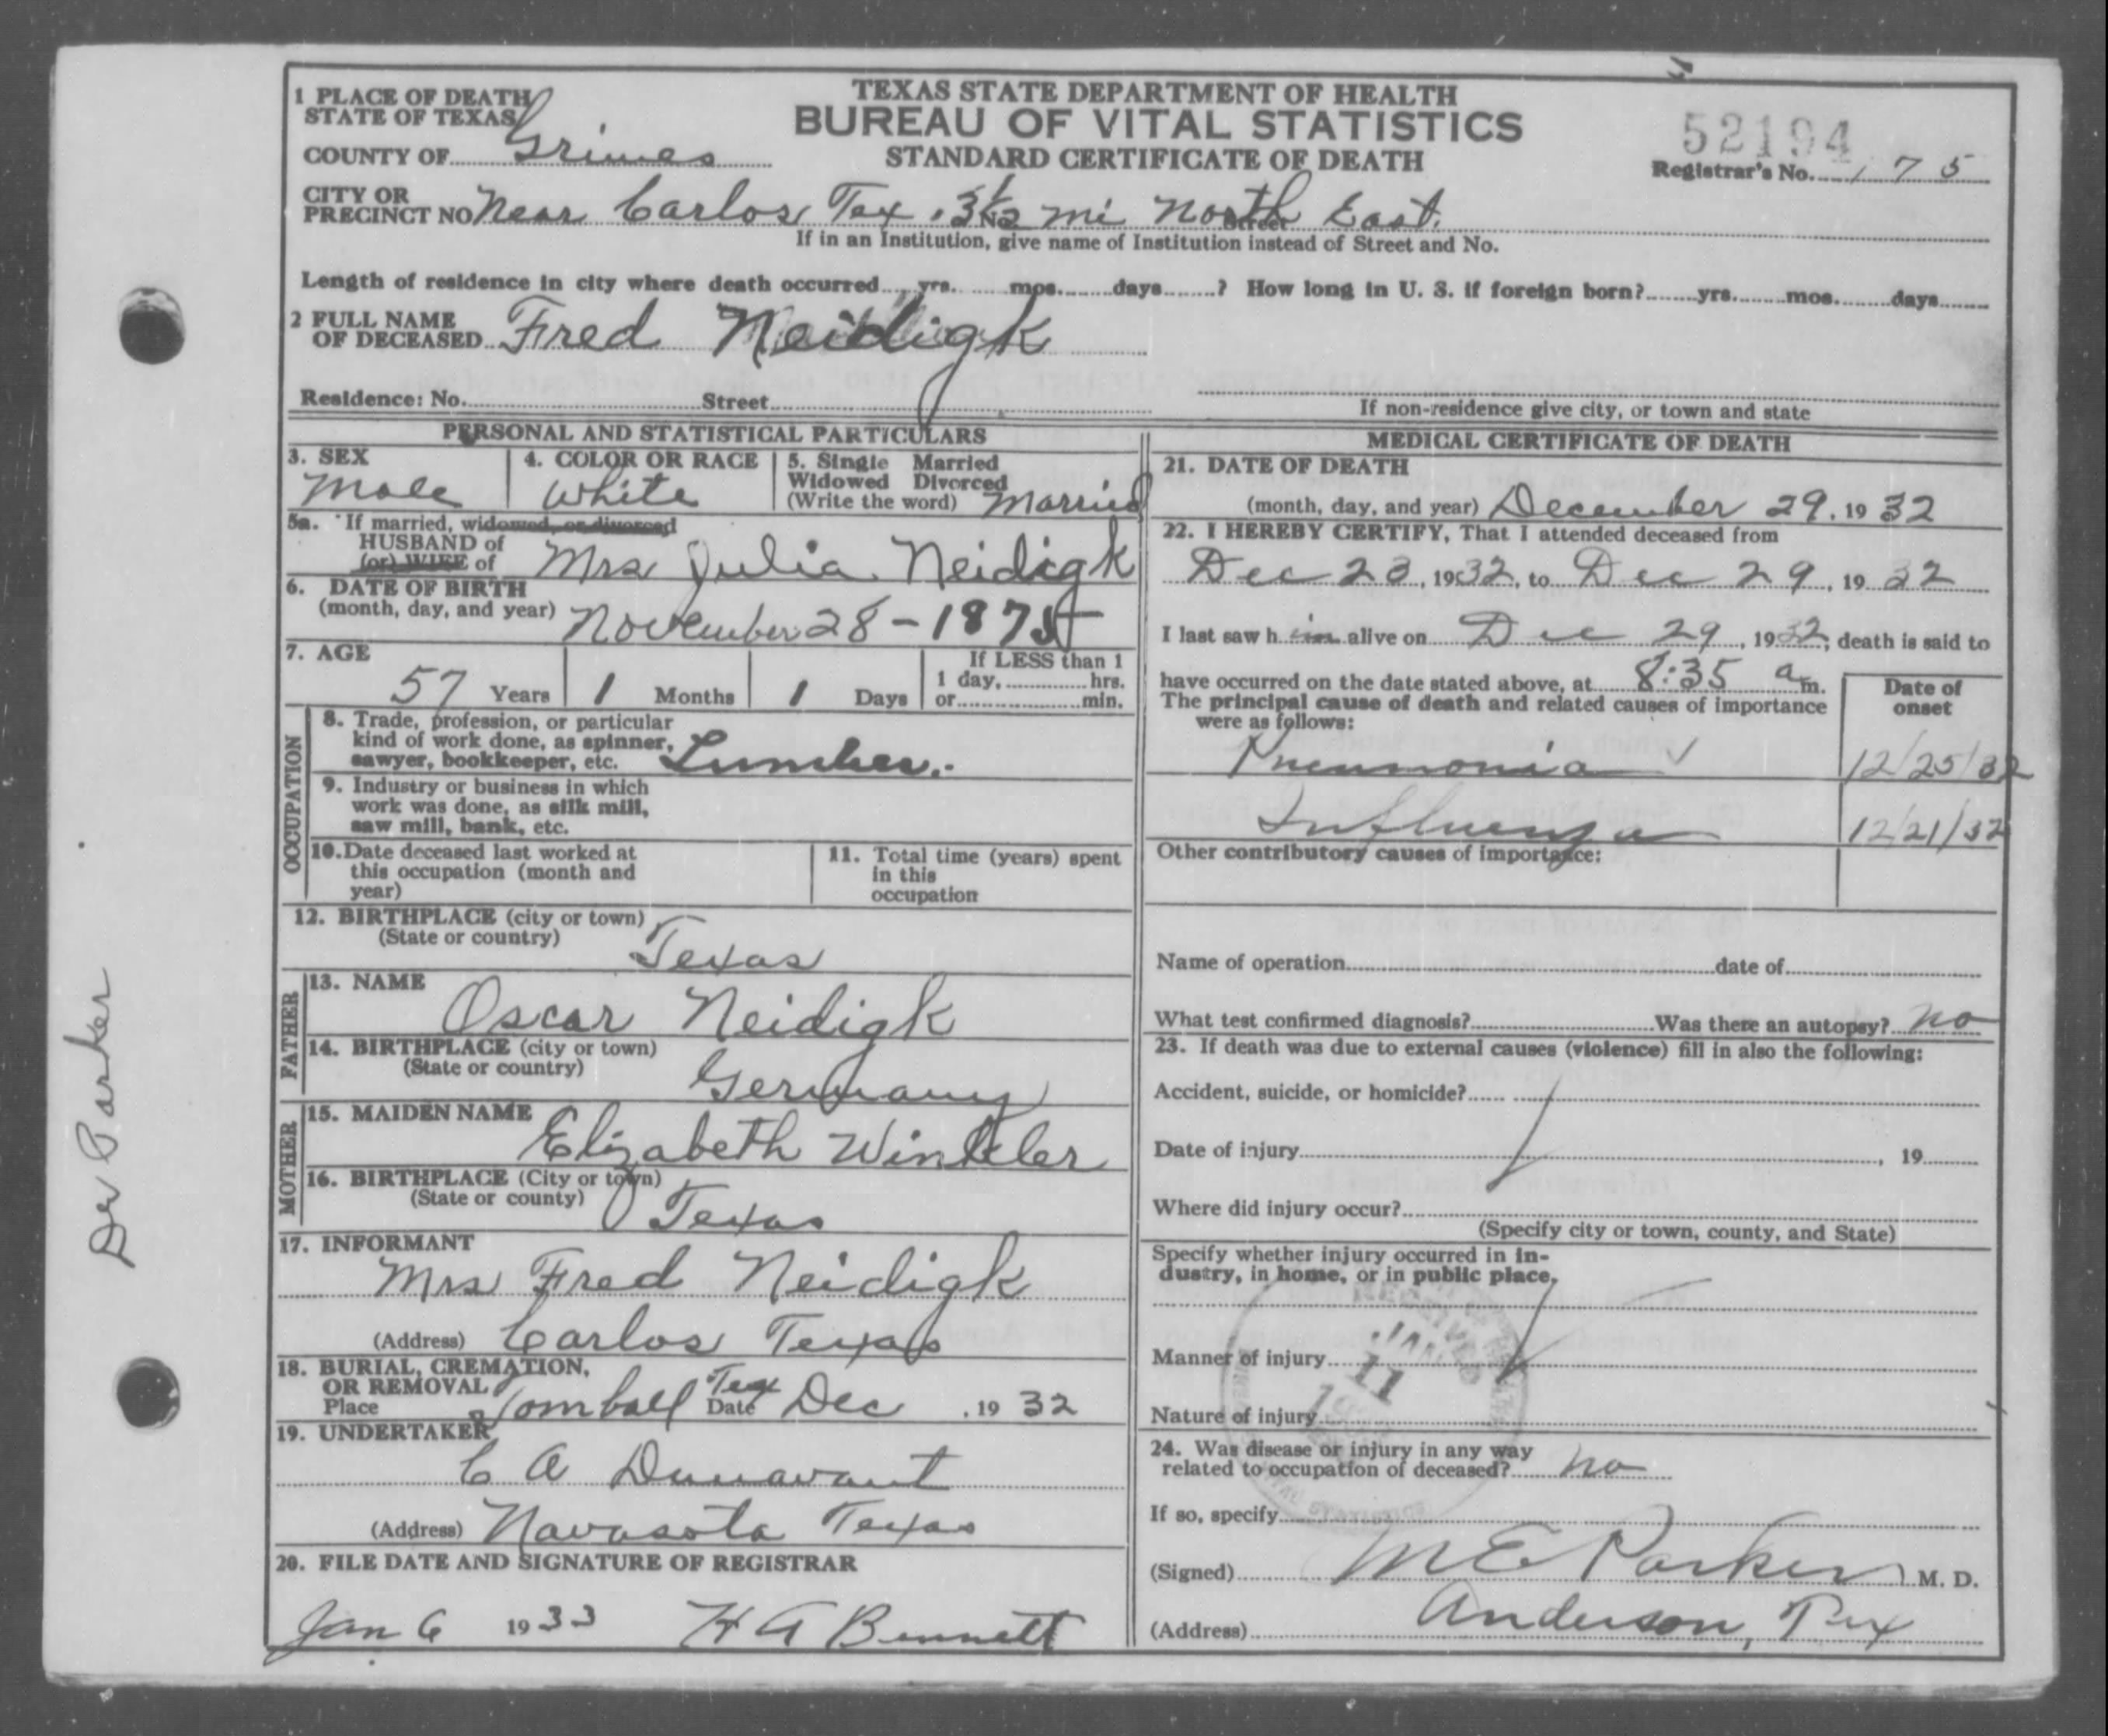 1 PLACE OF DEATH
STATE OF TEXAS
COUNTY OF Grimes
TEXAS STATE DEPARTMENT OF HEALTH
BUREAU OF VITAL STATISTICS
STANDARD CERTIFICATE OF DEATH
52194
Registrar's No. 175
CITY OR
PRECINCT NO Near Carlos Tex. 3½ mi North East.
No. Street
If in an Institution, give name of Institution instead of Street and No.
Length of residence in city where death occurred yrs. mos. days ? How long in U. S. if foreign born? yrs. mos. days
2 FULL NAME
OF DECEASED Fred Neidigk
Residence: No. Street
If non-residence give city, or town and state
PERSONAL AND STATISTICAL PARTICULARS
3. SEX
Male
4. COLOR OR RACE
White
5. Single Married
Widowed Divorced
(Write the word) Married
5a. If married, widowed, or divorced
HUSBAND of
(or) WIFE of Mrs Julia Neidigk
6. DATE OF BIRTH
(month, day, and year) November 28 - 1875
7. AGE
57 Years 1 Months 1 Days
If LESS than 1
1 day, hrs.
or min.
OCCUPATION
8. Trade, profession, or particular
kind of work done, as spinner,
sawyer, bookkeeper, etc. Lumber.
9. Industry or business in which
work was done, as silk mill,
saw mill, bank, etc.
10. Date deceased last worked at
this occupation (month and
year)
11. Total time (years) spent
in this
occupation
12. BIRTHPLACE (city or town)
(State or country) Texas
FATHER
13. NAME
Oscar Neidigk
14. BIRTHPLACE (city or town)
(State or country) Germany
MOTHER
15. MAIDEN NAME
Elizabeth Winkler
16. BIRTHPLACE (City or town)
(State or county) Texas
17. INFORMANT
Mrs Fred Neidigk
(Address) Carlos Texas
18. BURIAL, CREMATION,
OR REMOVAL
Place Tomball Tex Date Dec , 19 32
19. UNDERTAKER
C A Dunavant
(Address) Navasota Texas
20. FILE DATE AND SIGNATURE OF REGISTRAR
Jan 6 19 33 H A Bennett
MEDICAL CERTIFICATE OF DEATH
21. DATE OF DEATH
(month, day, and year) December 29, 19 32
22. I HEREBY CERTIFY, That I attended deceased from
Dec 23, 1932, to Dec 29, 19 32
I last saw h im alive on Dec 29, 1932; death is said to
have occurred on the date stated above, at 8:35 a m.
The principal cause of death and related causes of importance
were as follows:
Date of
onset
Pneumonia 12/25/32
Influenza 12/21/32
Other contributory causes of importance:
Name of operation date of
What test confirmed diagnosis? Was there an autopsy? no
23. If death was due to external causes (violence) fill in also the following:
Accident, suicide, or homicide?
Date of injury , 19
Where did injury occur?
(Specify city or town, county, and State)
Specify whether injury occurred in in-
dustry, in home, or in public place.
RECEIVED
JAN
11
Manner of injury
Nature of injury
24. Was disease or injury in any way
related to occupation of deceased? no
If so, specify
(Signed) M E Parker M. D.
(Address) Anderson, Tex
Dr Parker